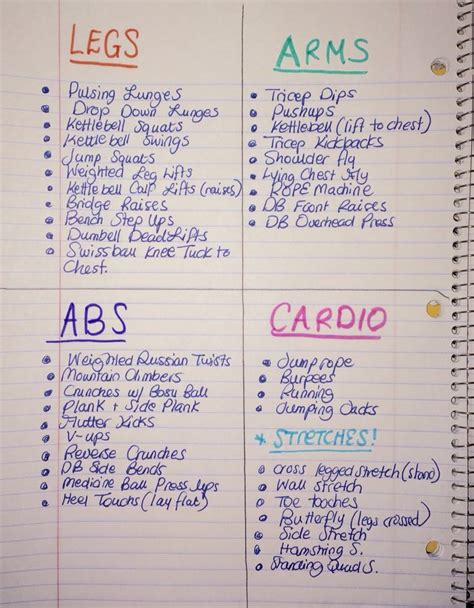 LEGS
Pulsing Lunges
Drop Down Lunges
Kettlebell Squats
Kettlebell Swings
Jump Squats
Weighted Leg Lifts
Kettlebell Calf Lifts (raises)
Bridge Raises
Bench Step Ups
Dumbell DeadLifts
Swissball Knee Tuck to
Chest.
ARMS
Tricep Dips
Pushups
Kettlebell (lift to chest)
Tricep Kickbacks
Shoulder Fly
Lying Chest Fly
ROPE Machine
DB Front Raises
DB Overhead Press
ABS
Weighted Russian Twists
Mountain Climbers
Crunches w/ Bosu Ball
Plank + Side Plank
Flutter Kicks
V-ups
Reverse Crunches
DB Side Bends
Medicine Ball Press Ups
Heel Touches (lay flat)
CARDIO
Jumprope
Burpees
Running
Jumping Jacks
* STRETCHES!
Cross legged stretch (stand)
Wall stretch
Toe touches
Butterfly (legs crossed)
Side Stretch
Hamstring S.
Standing Quad S.